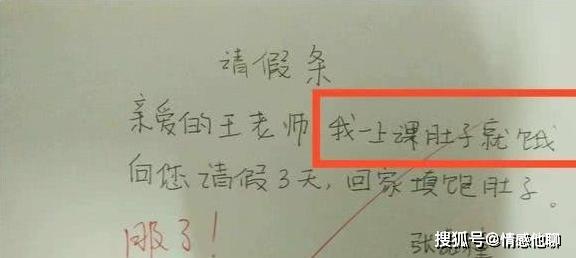 请假条
亲爱的王老师 我一上课肚子就饿
向您请假3天,回家填饱肚子。
服了!
张
搜狐号@情感他聊